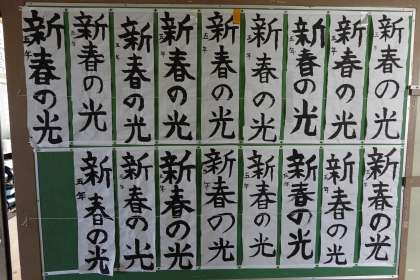 新春の光
新春の光
五年
新春の光
五年
新春の光
新春の光
新春の光
新春の光
新春の光
新春の光
五年
新春の光
新春の光
新春の光
新春の光
新春の光
新春の光
新春の光
新春の光
五年